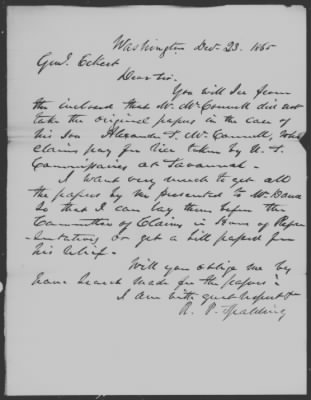 Washington Dec. 23. 1865
Genl. Eckert
Dear sir.
You will see from
the inclosed that Mr. McConnell did not
take the original papers in the case of
his son Alexander S. McConnell, who
claims pay for rice taken by U. S.
Commissaries at Savannah.
I want very much to get all
the papers by me presented to Mr. Dana
so that I can lay them before the
Committee of Claims in House of Repre
-sentatives, or get a bill passed for
his relief.
Will you oblige me by
have search made for the papers?
I am with great respect &
R. P. Spalding